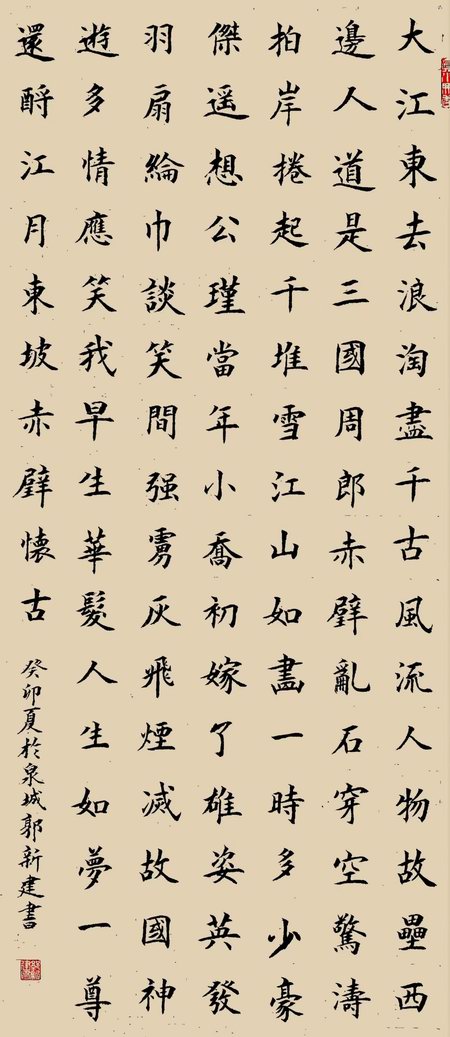 大江東去浪淘盡千古風流人物故壘西
邊人道是三國周郎赤壁亂石穿空驚濤
拍岸捲起千堆雪江山如畫一時多少豪
傑遥想公瑾當年小喬初嫁了雄姿英發
羽扇綸巾談笑間强虜灰飛煙滅故國神
遊多情應笑我早生華髮人生如夢一尊
還酹江月東坡赤壁懷古
癸卯夏於泉城郭新建書